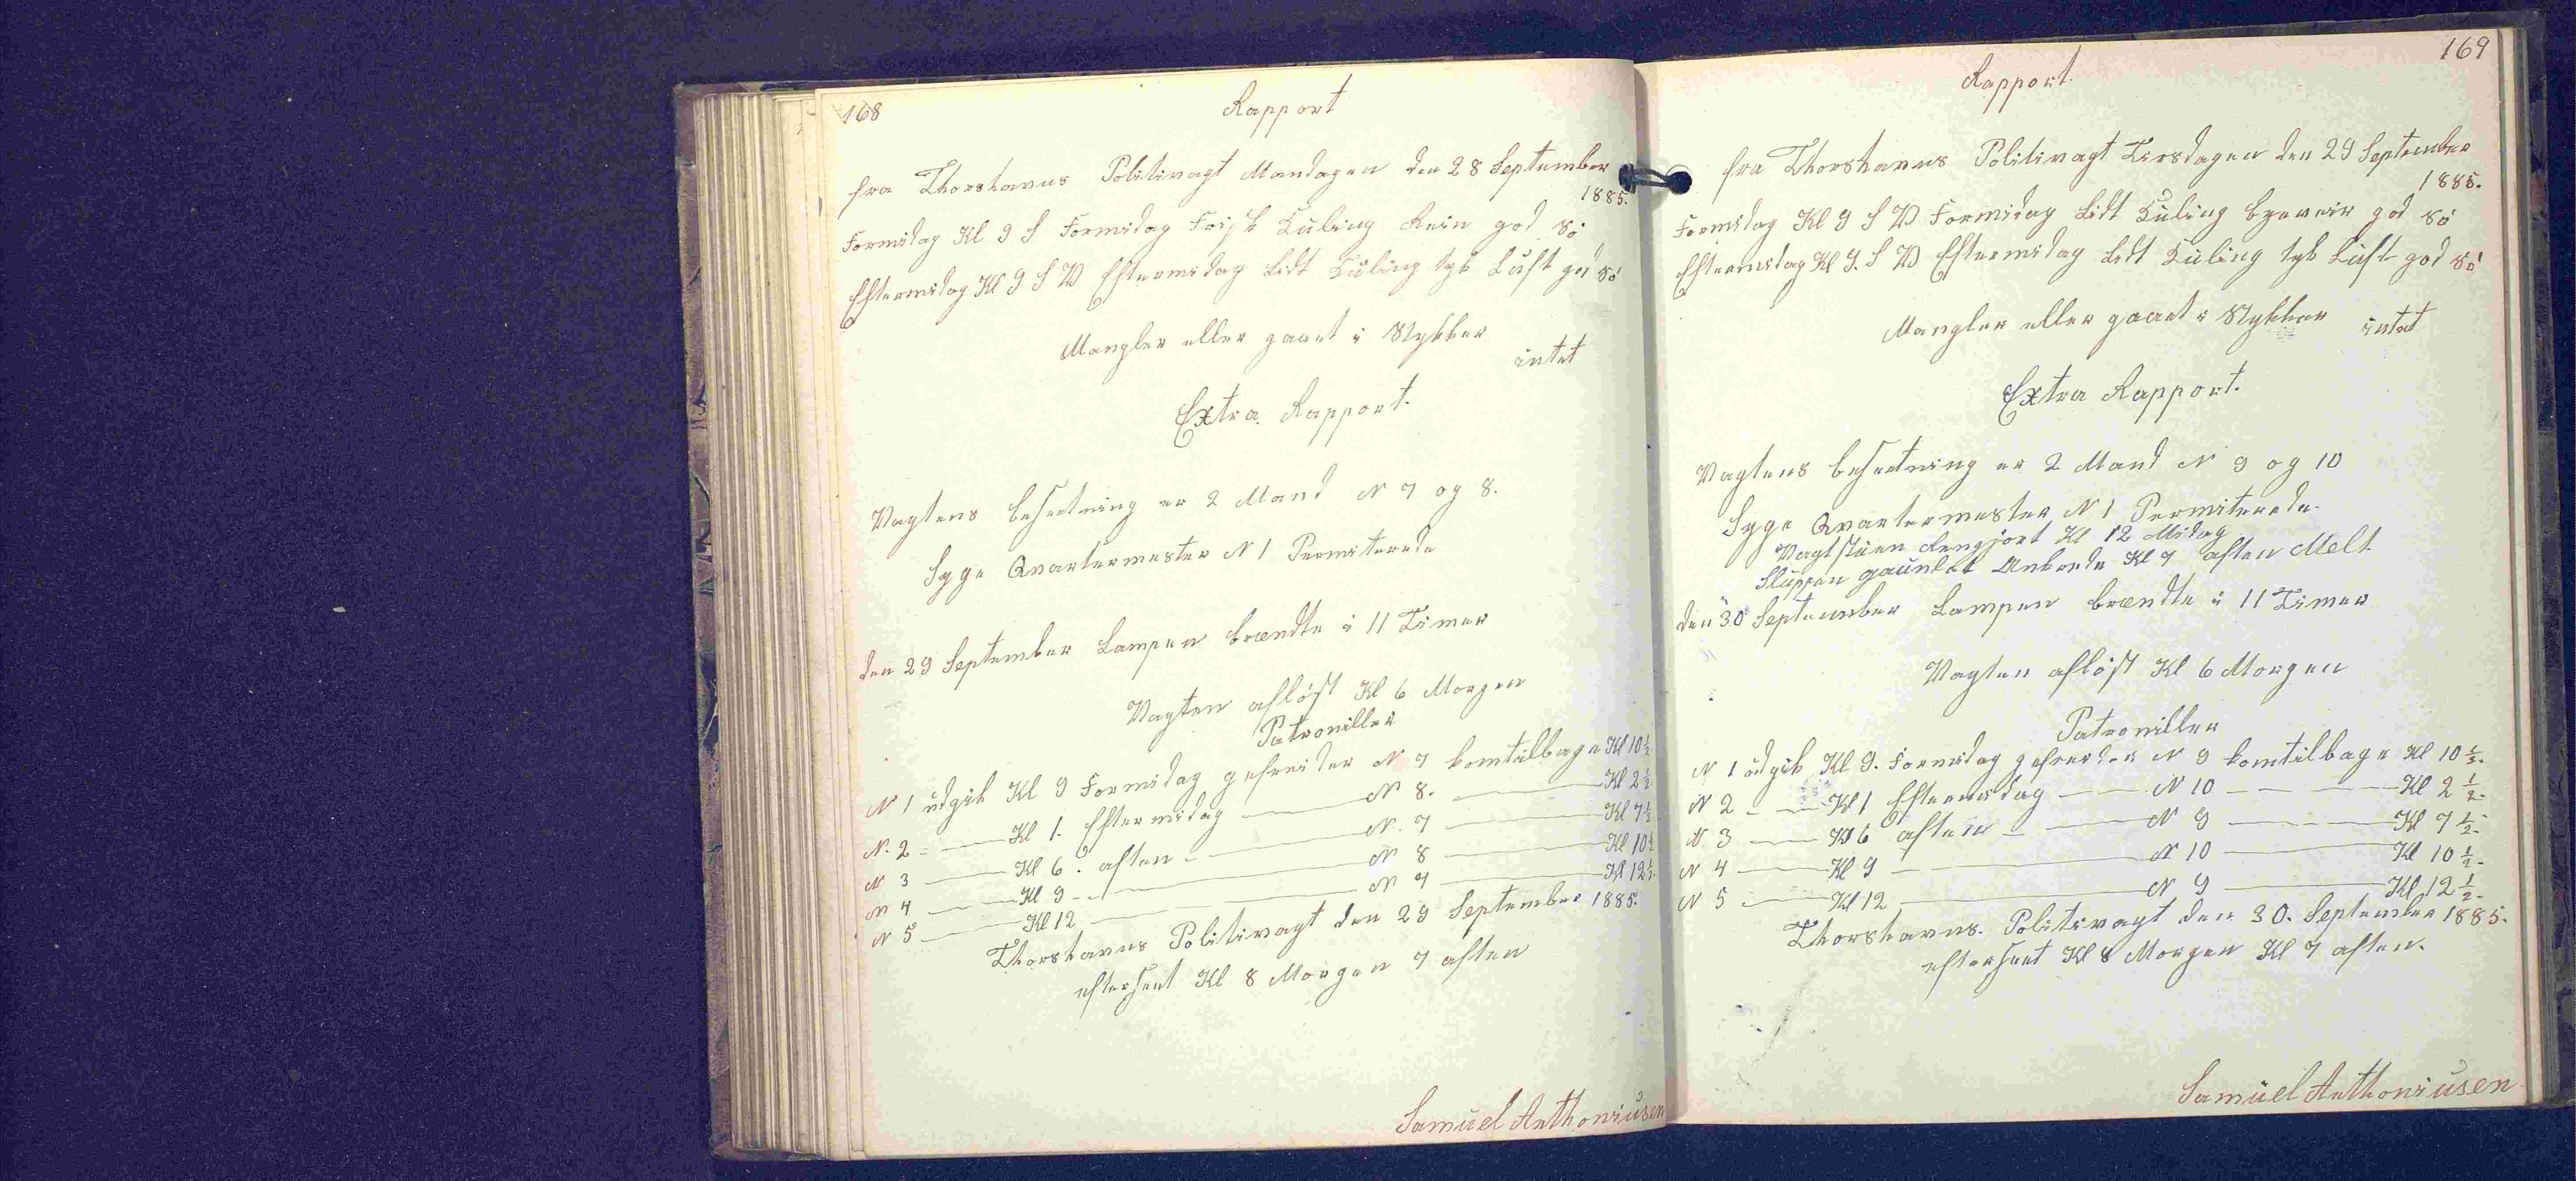 168
Rapport
fra Thorshavns Politivagt Mandagen den 28 September
1885.
Formidag Kl 9 S Formidag Frisk Kuling Rein god Sö
Eftermidag Kl 9 S W Eftermidag Lidt Kuling tyk Luft god Sö
Mangler eller gaaet i Stykker
intet
Extra Rapport.
Vagtens besætning er 2 Mand N 7 og 8.
Syge Qvartermester N 1 Permiterede
den 29 September Lampen brændte i 11 Timer
Vagten aflöst Kl 6 Morgen
Patrouiller
N 1 udgik Kl 9 Formidag gefreider N 7 komtilbage Kl 10 1/2
N. 2 - — Kl 1. Eftermidag — N 8. — Kl 2 1/2
N 3 — Kl 6. aften - — N. 7 — Kl 7 1/2
N 4 — Kl 9 - — N 8 — Kl 10 1/2
N 5 — Kl 12 — N 7 — Kl 12 1/2
Thorshavns Politivagt den 29 September 1885.
efterseet Kl 8 Morgen 7 aften
Samuel Anthoniusen
169
Rapport
fra Thorshavns Politivagt Tirsdagen den 29 September
1885.
Formidag Kl 9 S W Formidag Lidt Kuling god Sö
Eftermidag Kl 9. S W Eftermidag Lidt Kuling tyk Luft god Sö
Mangler eller gaaet i Stykker intet
Extra Rapport.
Vagtens besætning er 2 Mand N 9 og 10
Syge Qvartermester N 1 Permiterede.
Vagtstuen Rengjort Kl 12 Midag
Sluppen Ankrede Kl 7 aften Melt.
den 30 September Lampen brændte i 11 Timer
Vagten aflöst Kl 6 Morgen
Patrouiller
N 1 udgik Kl 9. Formidag gefreider N 9 komtilbage Kl 10 1/2.
N 2 - — Kl 1 Eftermidag — N 10 — Kl 2 1/2.
N 3 — Kl 6 aften — N 9 — Kl 7 1/2.
N 4 — Kl 9 — N 10 — Kl 10 1/2.
N 5 — Kl 12 — N 9 — Kl 12 1/2.
Thorshavns. Politivagt den 30. September 1885.
efterseet Kl 8 Morgen Kl 7 aften.
Samuel Anthoniusen